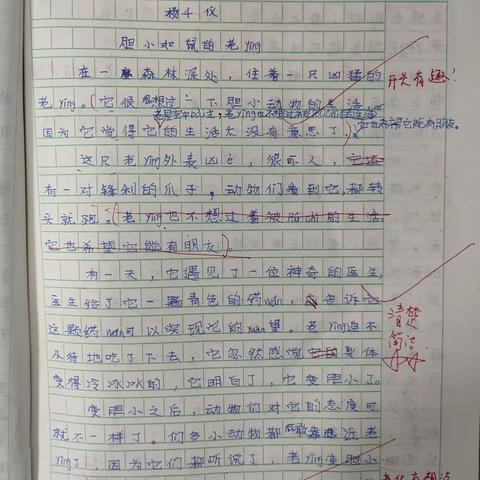 杨千仪
胆小如鼠的老ying
在一森林深处，住着一只凶猛的
开头有趣！
老ying。（它很想过一下胆小动物的生活，
因为它觉得它的生活太没有意思了）。
这只老ying外表凶，很吓人，
有一对锋利的爪子，动物们看到它，都转
头就跑。（老ying也不想过着被的生活，
它也希望它能有朋友）。
有一天，它遇见了一位神奇的医生，
医生给了它一颗青色的药wán，告诉它
清楚
简洁
这颗药wán可以实现它的wàn望。老ying迫不
及待地吃了下去，它忽然感觉身体
变得冷冰冰的，它明白了，它变胆小了。
变胆小之后，动物们对它的态度可
就不一样了。们多小动物都敢靠近老
ying了，因为它们都听说了，老ying变胆小